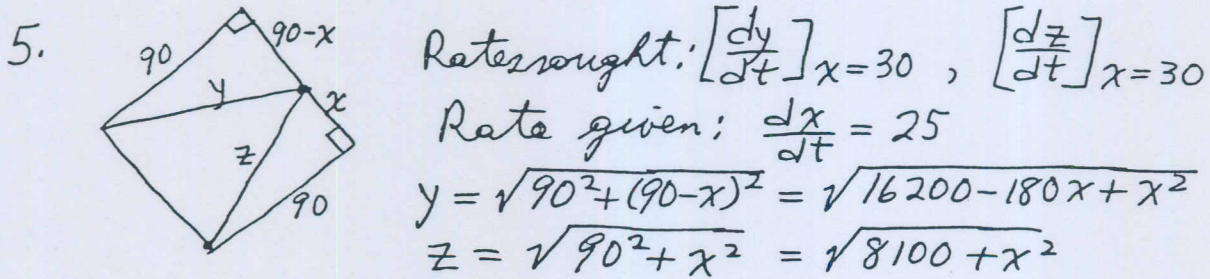 5.
90
90-x
y
x
z
90
Rates sought: [dy/dt]x=30 , [dz/dt]x=30
Rate given: dx/dt = 25
y = √(90²+(90-x)²) = √(16200-180x+x²)
z = √(90²+x²) = √(8100+x²)